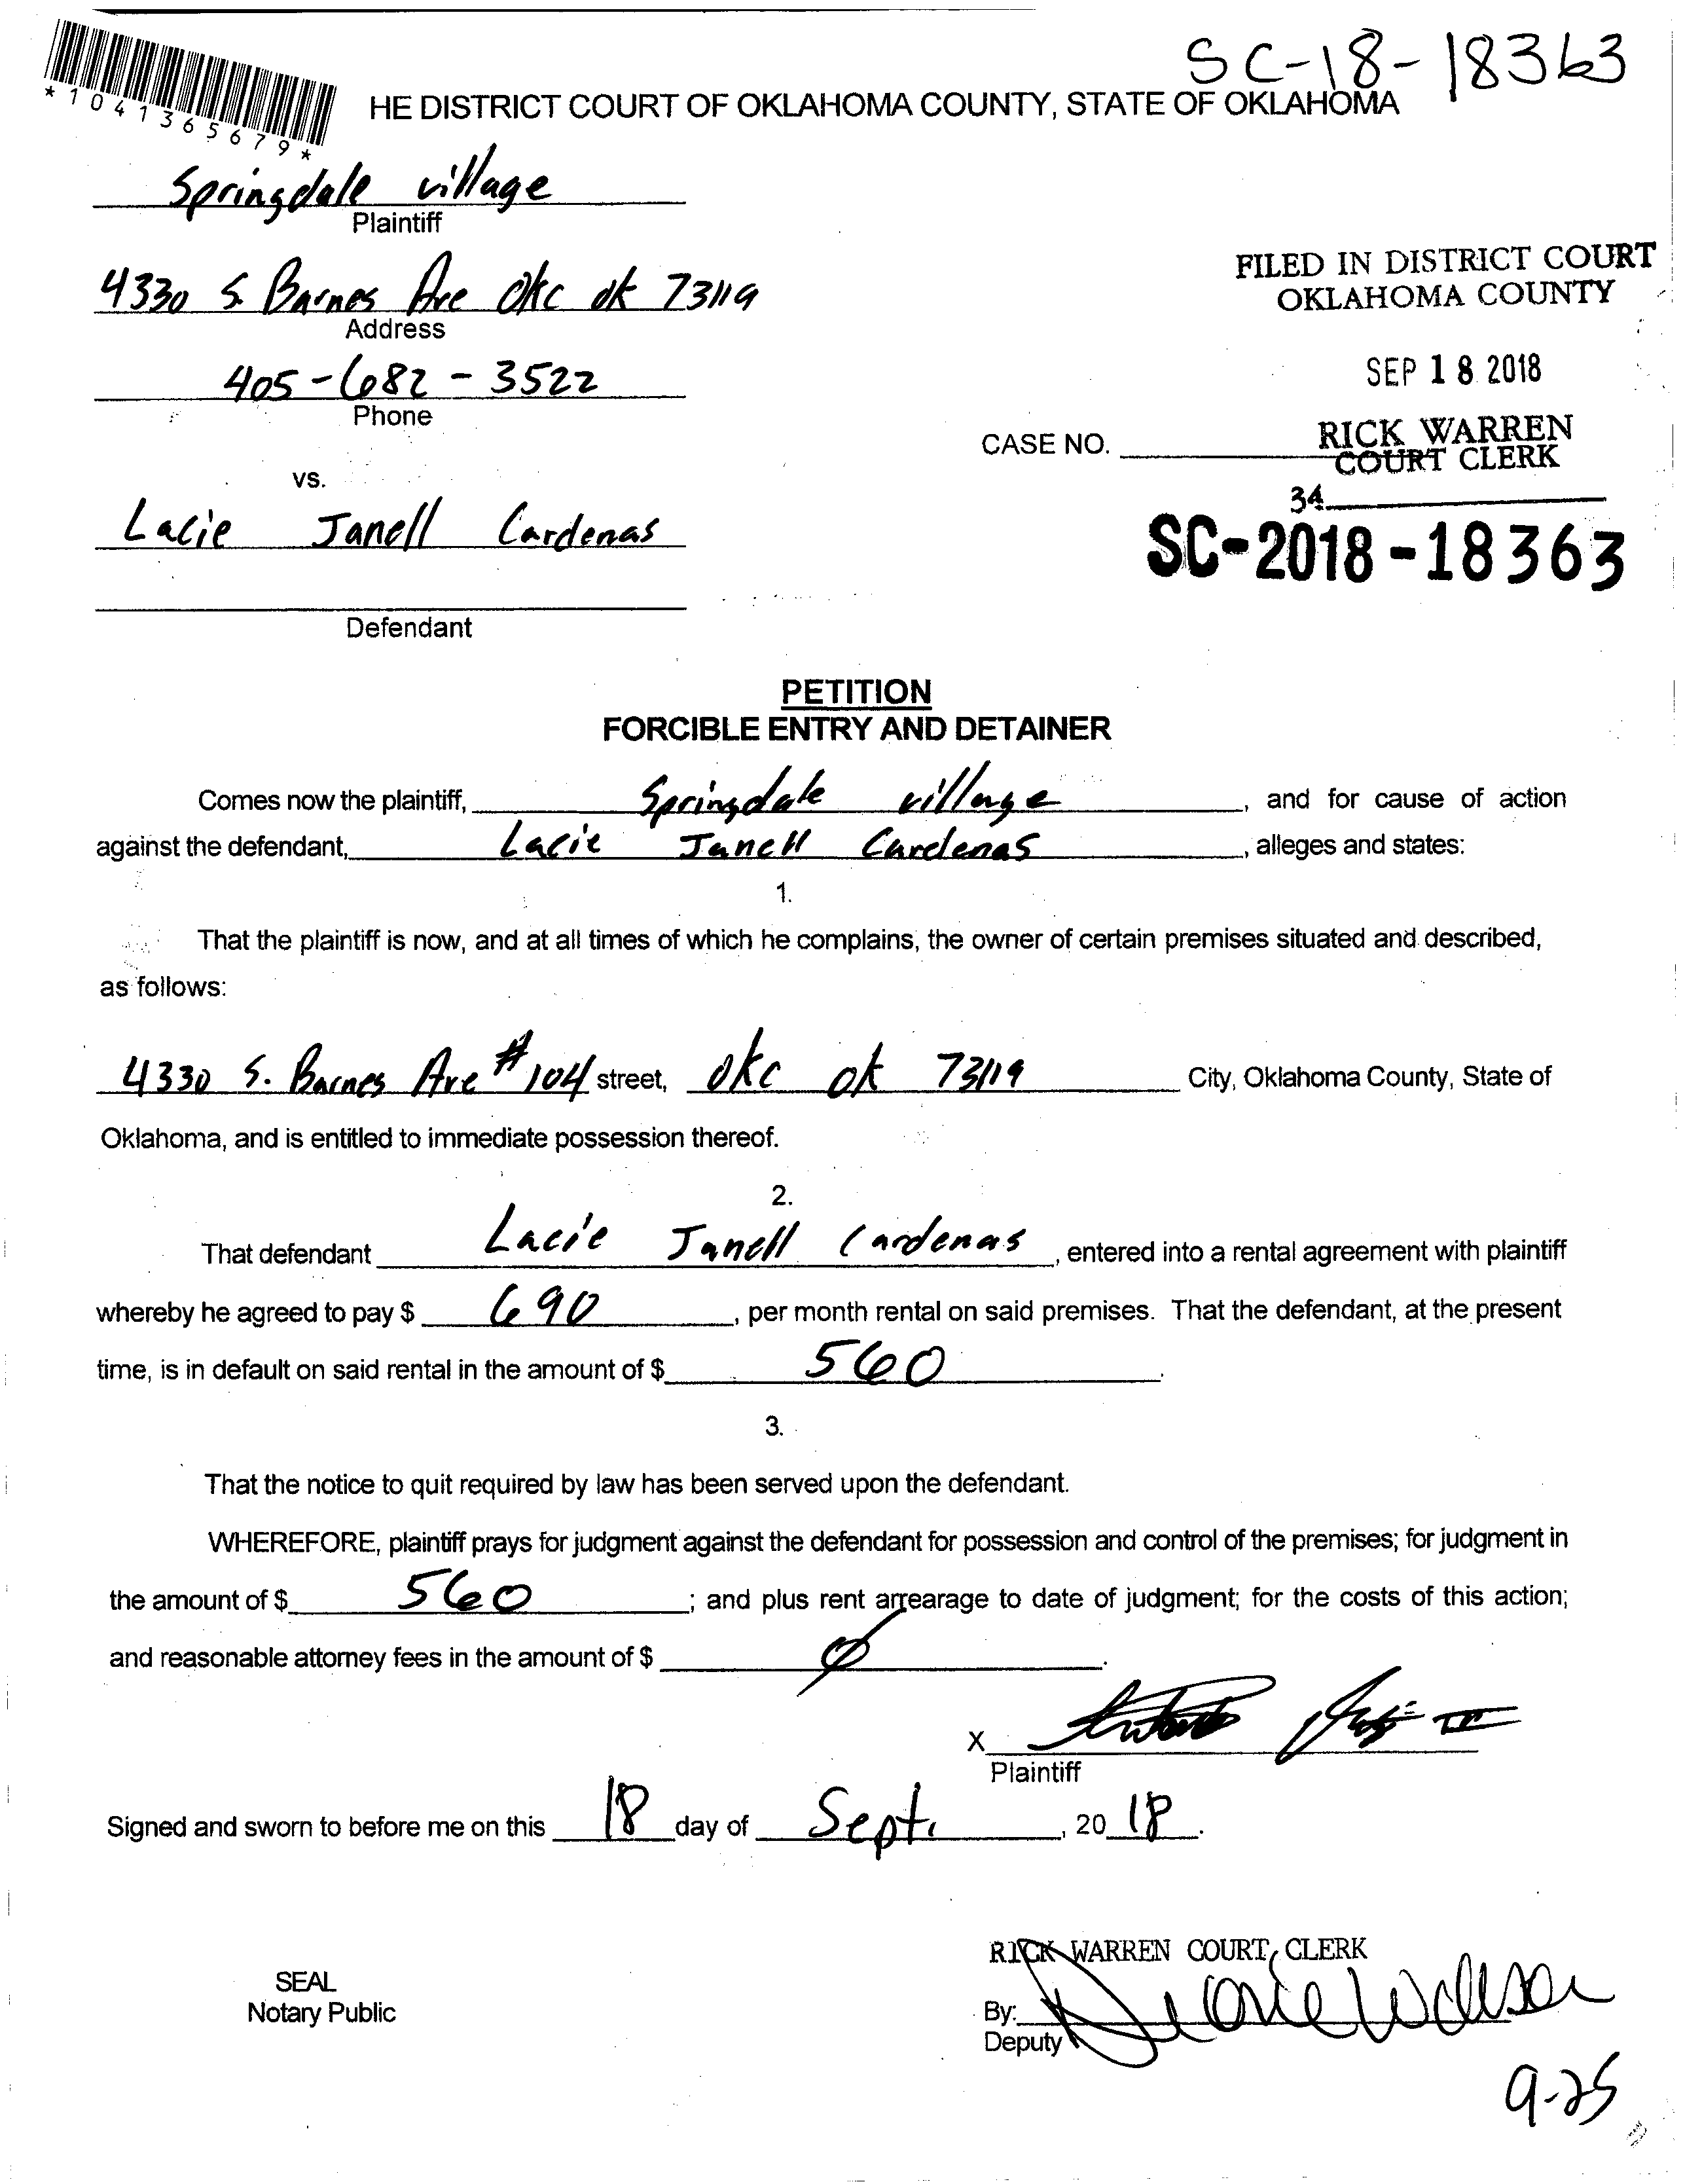 SC-18-18363
*1041365679*
HE DISTRICT COURT OF OKLAHOMA COUNTY, STATE OF OKLAHOMA
Springdale village
Plaintiff
4330 S. Barnes Ave Okc ok 73119
Address
405-682-3522
Phone
vs.
Lacie Janell Cardenas
Defendant
FILED IN DISTRICT COURT
OKLAHOMA COUNTY
SEP 18 2018
RICK WARREN
COURT CLERK
CASE NO.
34
SC-2018-18363
PETITION
FORCIBLE ENTRY AND DETAINER
Comes now the plaintiff, Springdale village, and for cause of action
against the defendant, Lacie Janell Cardenas, alleges and states:
1.
That the plaintiff is now, and at all times of which he complains, the owner of certain premises situated and described,
as follows:
4330 S. Barnes Ave #104 street, Okc ok 73119 City, Oklahoma County, State of
Oklahoma, and is entitled to immediate possession thereof.
2.
That defendant Lacie Janell Cardenas, entered into a rental agreement with plaintiff
whereby he agreed to pay $ 690, per month rental on said premises. That the defendant, at the present
time, is in default on said rental in the amount of $ 560.
3.
That the notice to quit required by law has been served upon the defendant.
WHEREFORE, plaintiff prays for judgment against the defendant for possession and control of the premises; for judgment in
the amount of $ 560; and plus rent arrearage to date of judgment; for the costs of this action;
and reasonable attorney fees in the amount of $ 0.
X
Plaintiff
Signed and sworn to before me on this 18 day of Sept., 2018.
SEAL
Notary Public
RICK WARREN COURT CLERK
By:
Deputy
9-25